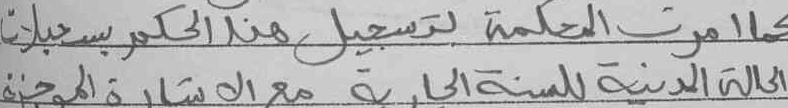 كما امرت المحكمة لتسجيل هذا الحكم بسجلات
الحالة المدنية للسنة الجارية مع الاشارة الموجزة